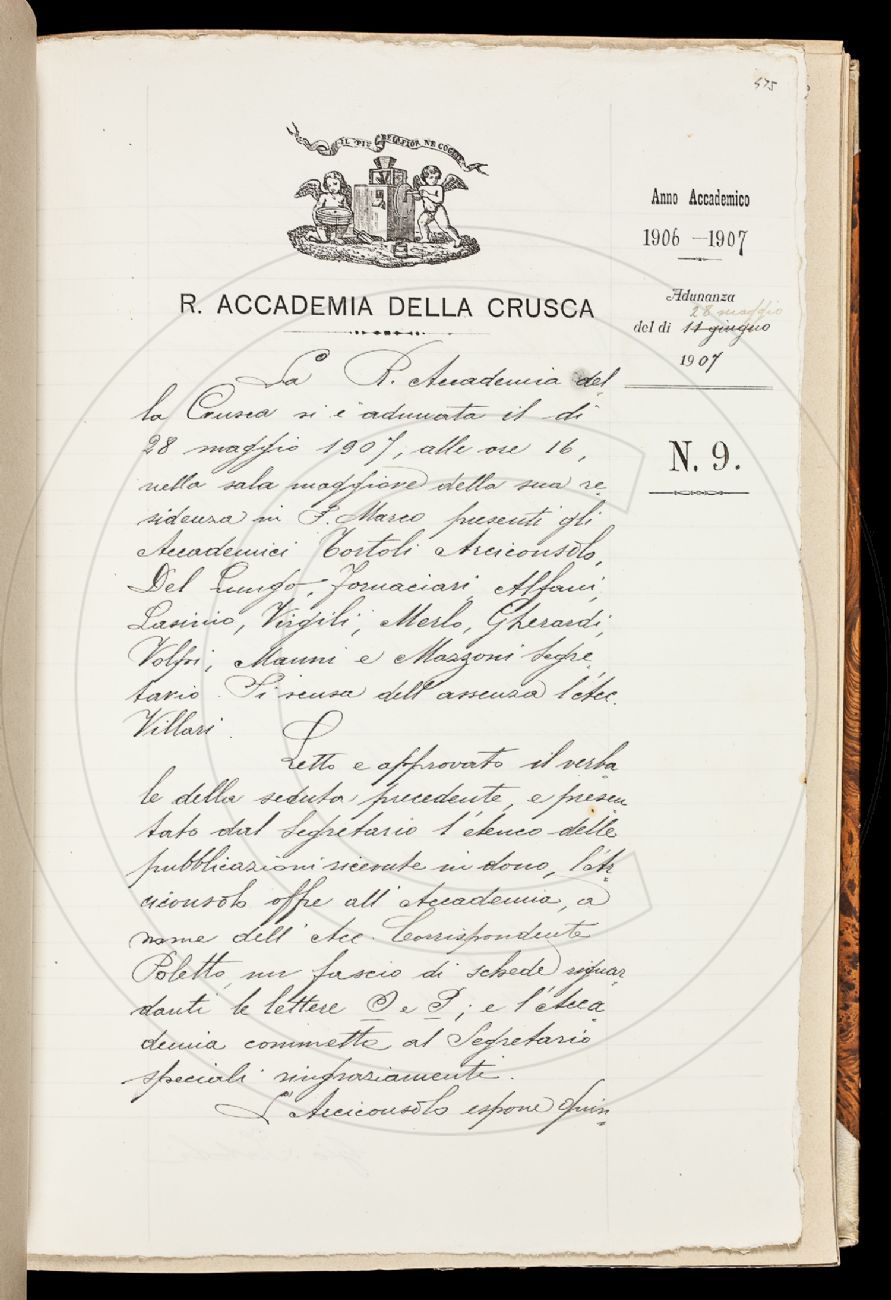 475
IL PIÙ BEL FIOR NE COGLIE
Anno Accademico
1906 — 1907
Adunanza
28 maggio
del dì 11 giugno
1907
N. 9.
R. ACCADEMIA DELLA CRUSCA
La R. Accademia del
la Crusca si è adunata il dì
28 maggio 1907, alle ore 16,
nella sala maggiore della sua re
sidenza in S. Marco presenti gli
Accademici Tortoli Arciconsolo,
Del Lungo, Fornaciari, Alfani,
Lasinio, Virgili, Merlo, Gherardi,
Volpi, Manni e Mazzoni Segre
tario. Si scusa dell'assenza l'Acc.
Villari.
Letto e approvato il verba
le della seduta precedente, e presen
tato dal Segretario l'elenco delle
pubblicazioni ricevute in dono, l'Ar
ciconsolo offre all'Accademia, a
nome dell'Acc. Corrispondente
Poletto, un fascio di schede riguar
danti le lettere O e P; e l'Acca
demia commette al Segretario
speciali ringraziamenti.
L'Arciconsolo espone quin